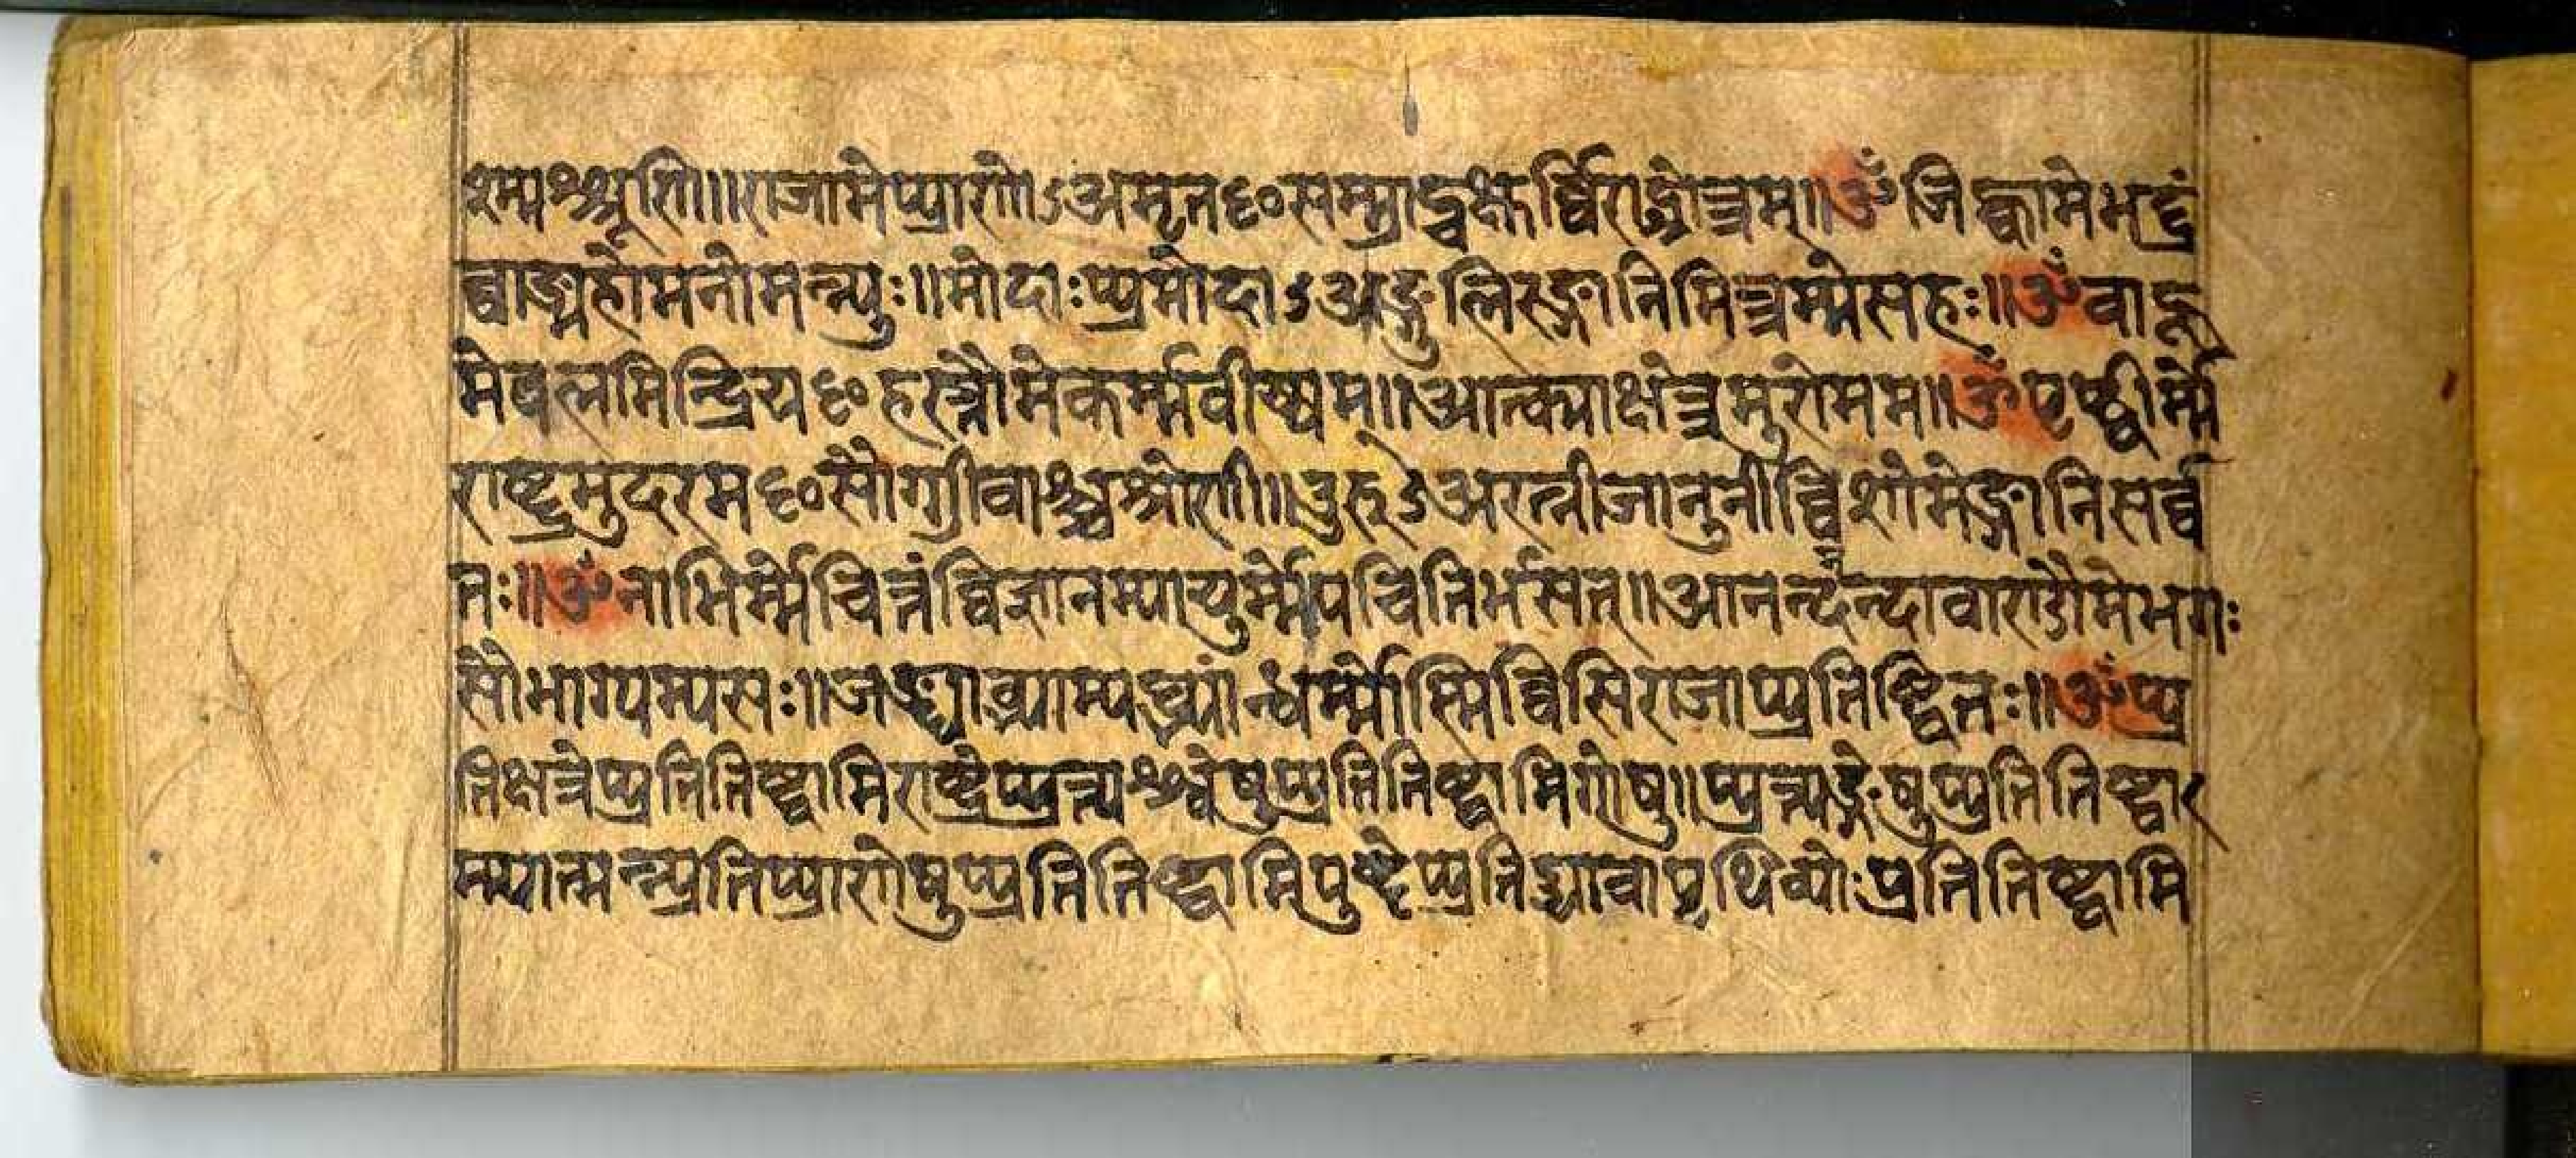 श्मश्श्रूणि॥॥राजामेप्प्राणो॥ऽअमृतᳬसम्म्राट्टचक्षुर्व्विराट्श्रोत्त्रम्॥ॐजिह्वामेभद्द्रं
व्वाङ्महोमनोमन्न्युः॥मोदाःप्प्रमोदाऽअङ्गुलिरङ्गानिमित्त्रम्मेसहः॥ॐवाहू
मेबलमिन्द्रियᳬहस्त्तौमेकर्म्मवीर्य्यम्॥आत्क्माक्षत्त्रमुरोमम॥ॐपृष्ठ्ठीर्म्मे
राष्ट्रमुदरमᳬसौग्ग्रीवाश्श्चश्रोणी॥उरूऽअरत्नीजानुनीव्विशोमेङ्गानिसर्व्व
तः॥ॐनाभिर्म्मेचित्तंव्विज्ञानम्पायुर्म्मेपचितिर्भसत्॥आनन्दनन्दावाण्डौमेभगः
सौभाग्यम्पसः॥जङ्घाब्भ्याम्पद्भ्यान्धर्म्मोस्म्मिव्विसिराजाप्प्रतिष्ठ्ठितः॥ॐप्प्र
तिक्षत्रेप्प्रतितिष्ठ्ठामिराष्ट्रेप्प्रत्त्यश्श्वेषुप्प्रतितिष्ठ्ठामिगोषु॥प्प्रत्त्यङ्गेषुप्प्रतितिष्ठ्ठा
म्म्यात्मन्न्प्रतिप्प्राणेषुप्प्रतितिष्ठ्ठामिपुष्टेप्प्रतिद्यावापृथिव्योःप्रतितिष्ठ्ठामि